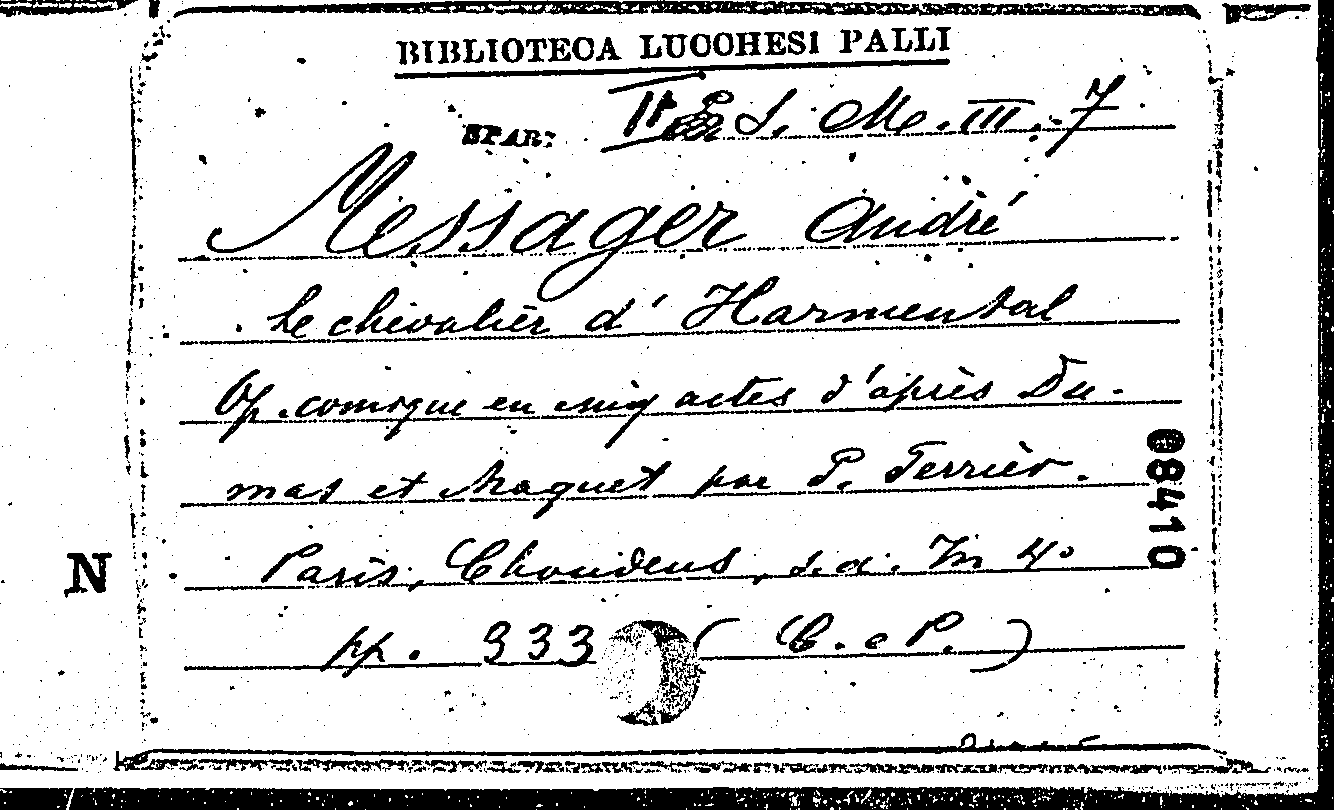 BIBLIOTECA LUCCHESI PALLI
SPAR: S. M. III. 7
Messager André
Le chevalier d'Harmental
Op. comique en cinq actes d'après Du-
mas et Maquet par P. Ferrier.
Paris, Choudens, s.a. In 4°
pp. 333 ( C. e P. )
08410
N